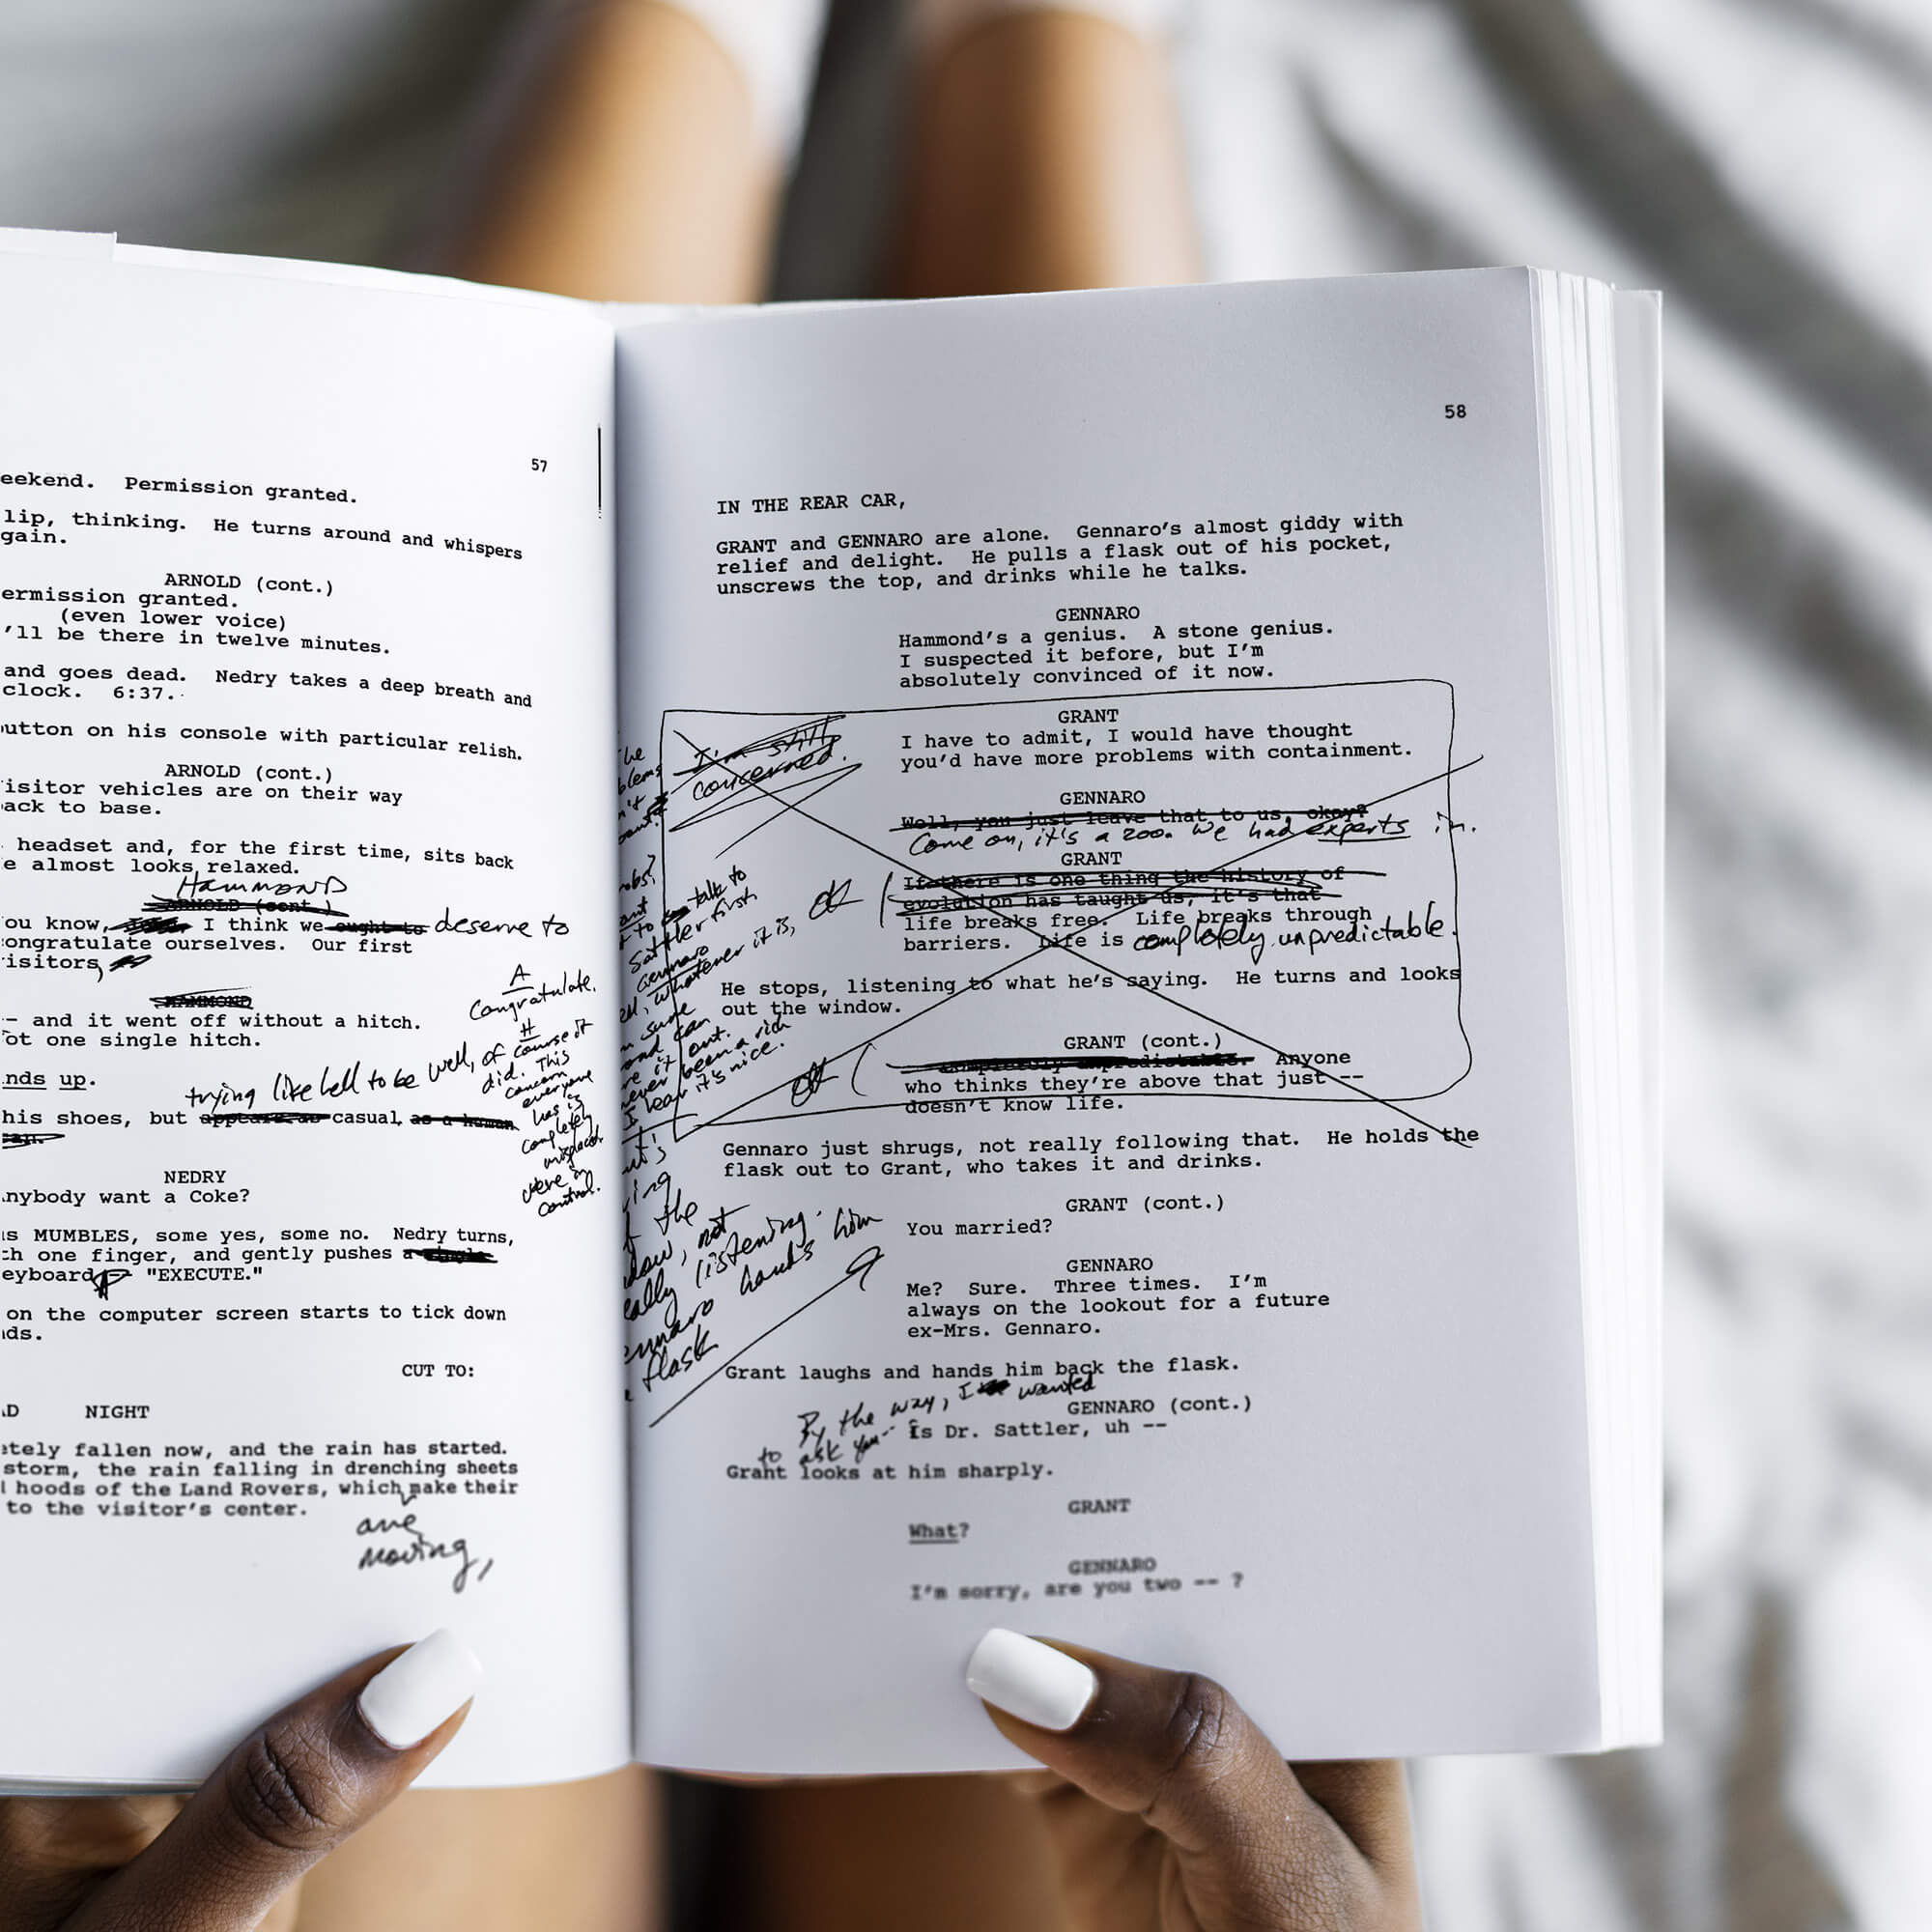 57
eekend. Permission granted.
lip, thinking. He turns around and whispers
gain.
ARNOLD (cont.)
ermission granted.
(even lower voice)
'll be there in twelve minutes.
and goes dead. Nedry takes a deep breath and
clock. 6:37.
utton on his console with particular relish.
ARNOLD (cont.)
isitor vehicles are on their way
ack to base.
headset and, for the first time, sits back
e almost looks relaxed.
Hammond
ARNOLD (cont.)
ou know, I think we ought to deserve to
ongratulate ourselves. Our first
isitors,
HAMMOND
-- and it went off without a hitch.
ot one single hitch.
A
Congratulate.
H
of course it
did. This
concern
everyone
has is
completely
misplaced.
We're in
control.
nds up.
trying like hell to be well,
his shoes, but appears as casual, as a human
NEDRY
nybody want a Coke?
s MUMBLES, some yes, some no. Nedry turns,
ch one finger, and gently pushes a single
eyboard "EXECUTE."
on the computer screen starts to tick down
ds.
CUT TO:
D NIGHT
etely fallen now, and the rain has started.
storm, the rain falling in drenching sheets
hoods of the Land Rovers, which make their
to the visitor's center.
are
moving,
58
IN THE REAR CAR,
GRANT and GENNARO are alone. Gennaro's almost giddy with
relief and delight. He pulls a flask out of his pocket,
unscrews the top, and drinks while he talks.
GENNARO
Hammond's a genius. A stone genius.
I suspected it before, but I'm
absolutely convinced of it now.
I'm still
concerned.
GRANT
I have to admit, I would have thought
you'd have more problems with containment.
GENNARO
Well, you just leave that to us, okay?
Come on, it's a zoo. We had experts in.
GRANT
If there is one thing the history of
evolution has taught us, it's that
life breaks free. Life breaks through
barriers. Life is completely unpredictable.
talk to
Sattler first.
Gennaro
whatever it is,
sure
can
it out.
never been a rich
I hear it's nice.
He stops, listening to what he's saying. He turns and looks
out the window.
GRANT (cont.)
Completely unpredictable. Anyone
who thinks they're above that just --
doesn't know life.
Gennaro just shrugs, not really following that. He holds the
flask out to Grant, who takes it and drinks.
the
dow, not
eally listening.
ennaro hands him
flask
GRANT (cont.)
You married?
GENNARO
Me? Sure. Three times. I'm
always on the lookout for a future
ex-Mrs. Gennaro.
Grant laughs and hands him back the flask.
By the way, I wanted
to ask you --
GENNARO (cont.)
is Dr. Sattler, uh --
Grant looks at him sharply.
GRANT
What?
GENNARO
I'm sorry, are you two -- ?